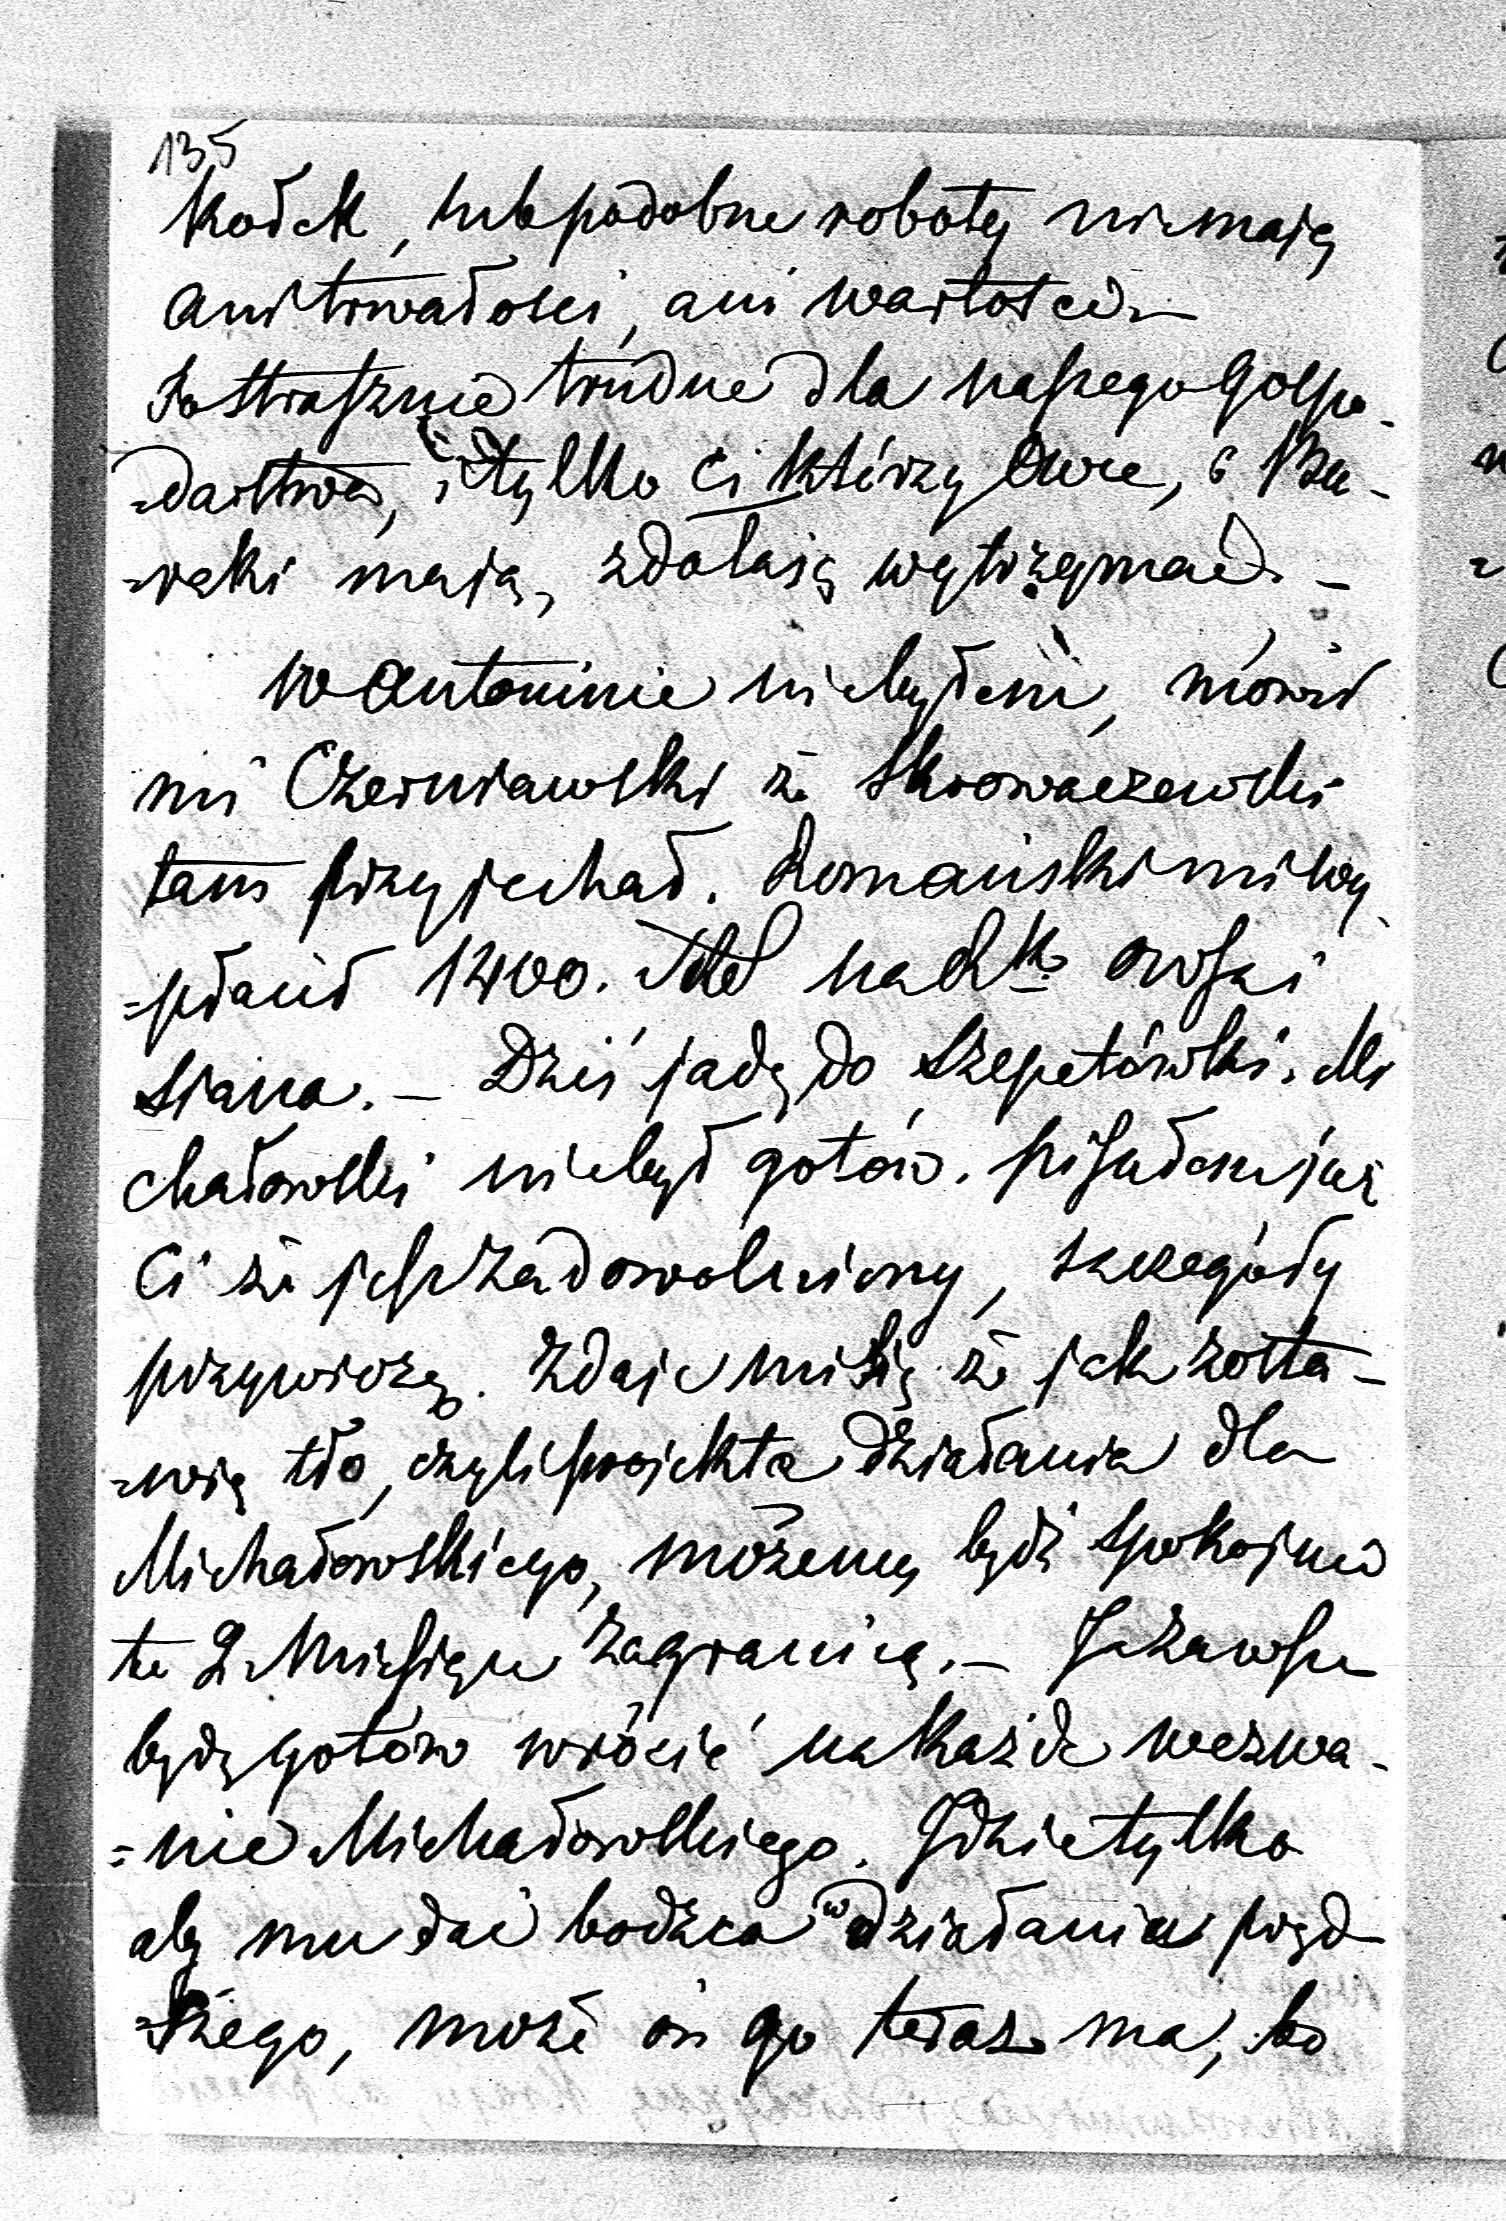 135
kołek, lub podobne roboty nie mają
ani trwałości, ani wartości.
So strasznie trudne dla naszego Gospo-
-darstwa, i tylko ci którzy Owce, i Bu-
-raki mają, zdołają wytrzymać. -
w Antoninie nie byłem, mówił
mi Czerniawski że Skrowaczewski
tam przyjechał. Romański mi wy
=płacił 1400. na owsa i
siana. - Dziś jadę do Szepetówki. Mi
chałowski nie był gotów. pisałem już
Ci że jest zadowolniony, szczegóły
przywiozę. Zdaje mi się że jak zosta-
-wię tło, czyli projekta działania dla
Michałowskiego, możemy być spokojnie
te 2 Miesiące zagranicą. - Ja zawsze
będę gotów wrócić na każde wezwa-
=nie Michałowskiego. Gdzie tylko
aby mu dać bodźca w działaniu pręd
-szego, może on go teraz ma, bo